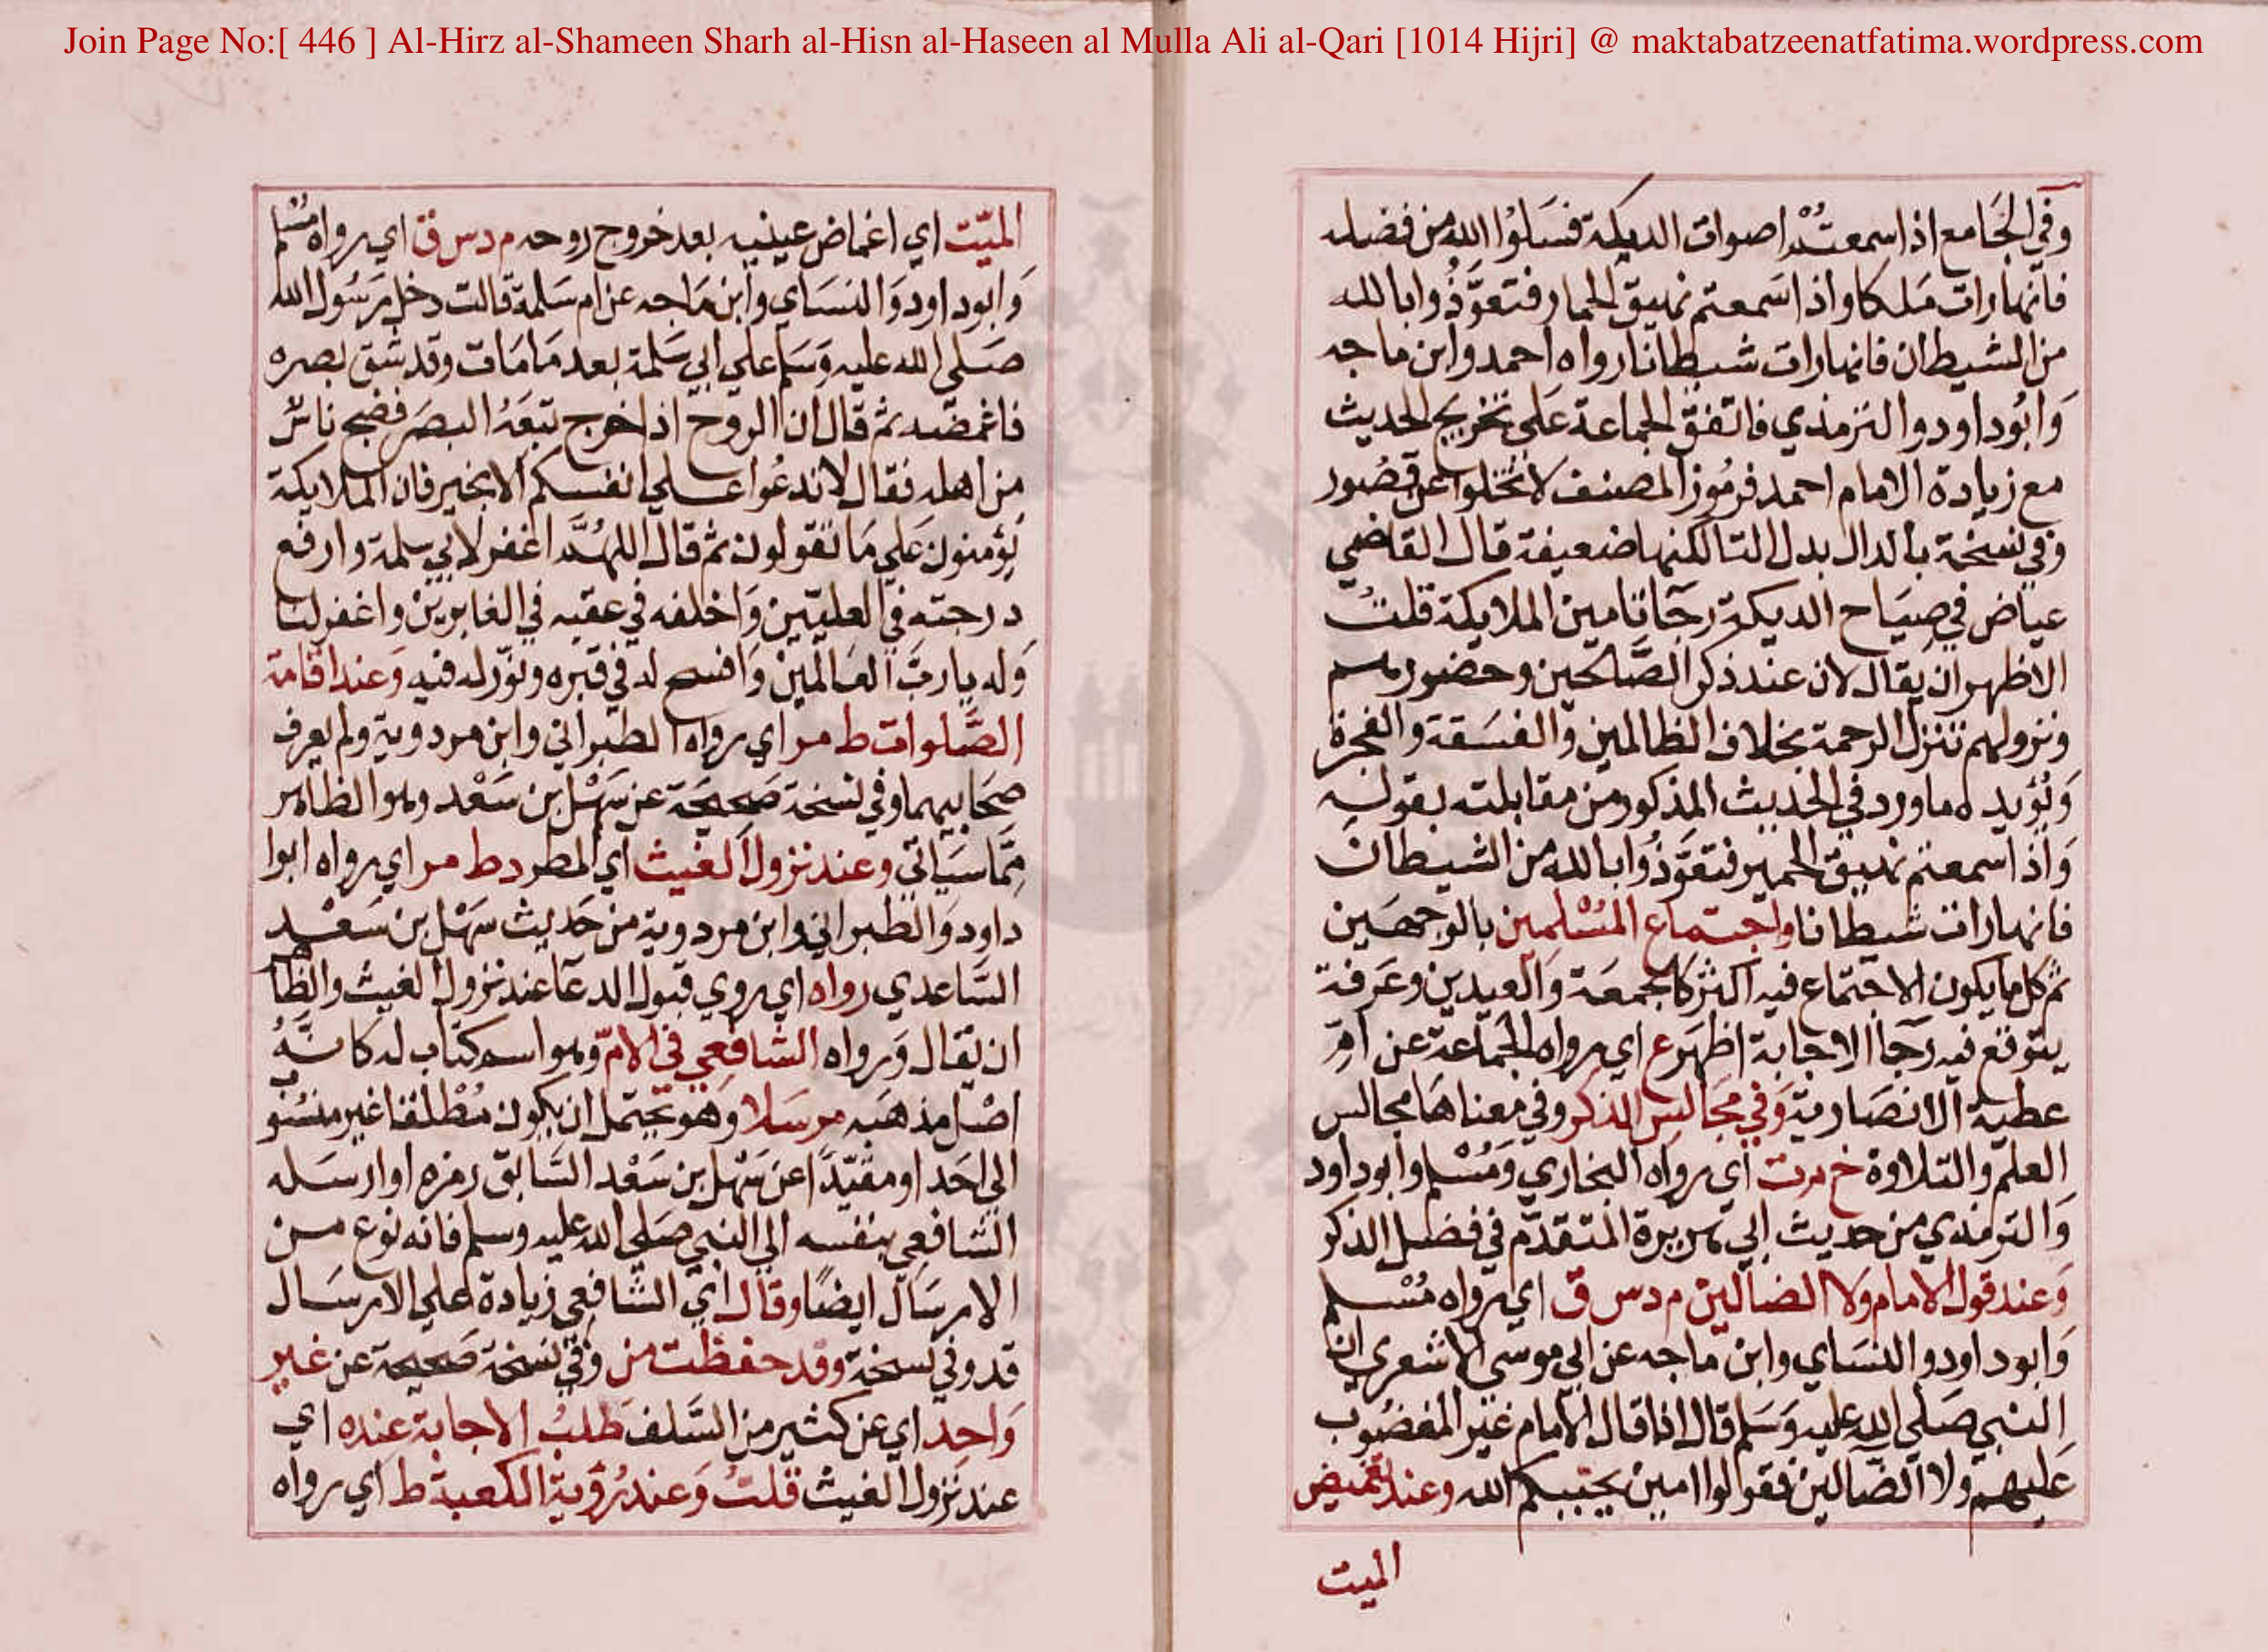 Join Page No:[ 446 ] Al-Hirz al-Shameen Sharh al-Hisn al-Haseen al Mulla Ali al-Qari [1014 Hijri] @ maktabatzeenatfatima.wordpress.com
وفي الجَامع اذا سمعتُم اصوات الديكة فسَلوُا الله من فضله
فانها رات مَلكا واذا سَمعتم نهيق الحمار فتعوَّذُوا بالله
من الشيطان فانها رات شيطانا رواه احمد وابن ماجه
وَابُوداود والترمذي فاتفق الجماعة عَلي تخريج الحديث
مع زيادة الامام احمد فرمُوز المصنف لا تخلوا عن قصُور
وفي نسخة بالدال بدل التا لكنها ضعيفة قال القاضي
عياض في صيَاح الديكة رجَا تامين الملايكة قلتُ
الاظهر ان يقال لان عند ذكر الصَّالحين وحضورهم
ونزولهم تنزل الرحمة بخلاف الظالمين والفسَقة والفجرة
وَيُؤيده ما ورد في الحديث المذكور من مقابلته بقوله
وَاذا سمعتم نهيق الحمير فتعَوَّذُوا بالله من الشيطان
فانها رات شيطانا واجتماع المسْلمين بالوجهَين
ثم كل ما يكون الاجتماع فيه اكثر كالجمعَة وَالعيدين وعَرفة
يتوقع فيه رجَا الاجابة اظهَر ع اي رواه الجمَاعة عن امّ
عطية الانصَارية وَفي مجَالس الذكر وفي معناهَا مجالس
العلم والتلاوة خ م د ت اي رواه البخاري وَمُسْلم وابوداود
وَالترمذي من حديث ابي هريرة المتقدّم في فضل الذكر
وَعند قول الامام ولا الضالين م د س ق اي رواه مُسْلم
وَابوداود والنسَاي وابن ماجه عن ابي موسي الاشعري ان
النبي صَلي الله عليه وَسَلم قال اذا قال الامام غير المغضُوب
عَليهم ولا الضالين فقولوا امين يجبكم الله وعند تغميض
الميت
الميّت اي اغماض عينيه بعد خروج روحه م د س ق اي رواه مُسْلم
وَابوداود وَالنسَاي وابن مَاجه عن ام سَلمة قالت دخل رَسُول الله
صَلي الله عليه وَسَلم علي ابي سَلمة بعد مَا مَات وقد شق بصره
فاغمضه ثم قال ان الروح اذا خرج تبعَهُ البصَر فضج ناسٌ
من اهله فقال لا تدعُوا علي انفسكم الا بخير فان الملايكة
يؤمنون عَلي مَا تقولون ثم قال اللهُمَّ اغفر لابي سلمة وارفع
درجته في العليّين وَاخلفه في عقبه في الغابرين واغفر لنا
وَله يا ربّ العَالمين وَافسح له في قبره ونوّر له فيه وَعند اقامة
الصَّلوات ط مر اي رواه الطبراني وابن مردوية ولم يعرف
صحَابيهما وفي نسخة صَحيحَة عن سَهْل بن سَعْد وهو الظاهر
مِمَّا سَياتي وعند نزول الغيث اي المطر د ط مر اي رواه ابوا
داود وَالطبراني وابن مردوية من حَديث سَهْل بن سَعْد
السَّاعدي رواه اي روي قبول الدعَا عند نزول الغيث والظا
ان يقال وَرواه الشافعي في الامّ وهو اسم كتاب له كانهُ
اصْل مذهَبه مرسَلا وَهو يحتمل ان يكون مُطْلقا غير منسُو
الي احَد او مقيّدًا عن سَهْل بن سَعْد السَّابق رمزه او ارسَله
الشافعي بنفسه الي النبي صَلي الله عليه وسلم فانه نوع من
الارسَال ايضًا وقال اي الشافعي زيادة علي الارسَال
قد وفي نسخة وقد حفظت من وفي نسخة صَحيحة عن غير
وَاحد اي عن كثير من السَّلف طلبُ الاجابة عنده اي
عند نزول الغيث قلتُ وَعند رُؤية الكعبة ط اي رواه